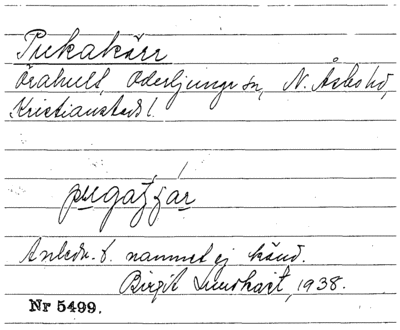 Pukakärr
Örahult, Oderljunga sn, N. Åsbo hd,
Kristianstads l.
pugaʒ́ ʒár
Anledn. t. namnet ej känd.
Birgit Lundkvist, 1938.
Nr 5499.